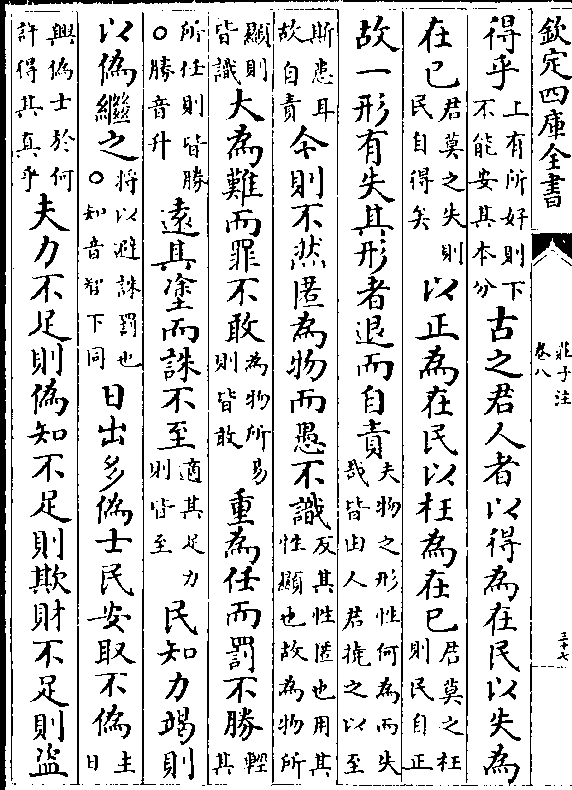 欽定四庫全書
莊子注
卷八
三十七
得乎上有所好則下不能安其本分古之君人者以得為在民以失為
在已君莫之失則民自得矣以正為在民以枉為在已君莫之枉則民自正
故一形有失其形者退而自責夫物之形性何為而失哉皆由人君撓之以至
斯患耳故自責今則不然匿為物而愚不識反其性匿也用其性顯也故為物所
顯則皆識大為難而罪不敢為物所易則皆敢重為任而罰不勝輕其
所任則皆勝○勝音升遠其塗而誅不至適其足力則皆至民知力竭則
以偽繼之將以避誅罰也○知音智下同日出多偽士民安取不偽主日
興偽士於何許得其真乎夫力不足則偽知不足則欺財不足則盜